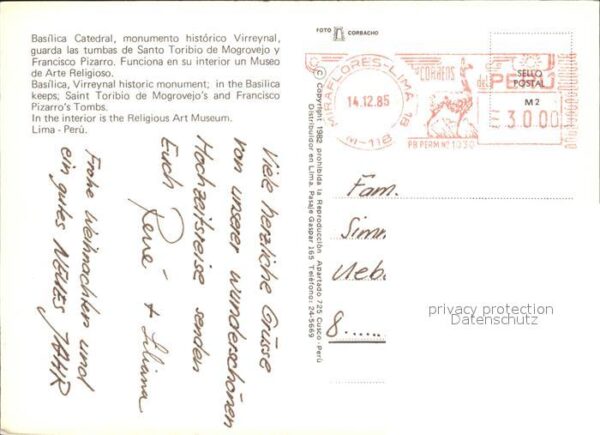 Basílica Catedral, monumento histórico Virreynal,
guarda las tumbas de Santo Toribio de Mogrovejo y
Francisco Pizarro. Funciona en su interior un Museo
de Arte Religioso.
Basílica, Virreynal historic monument; in the Basilica
keeps; Saint Toribio de Mogrovejo's and Francisco
Pizarro's Tombs.
In the interior is the Religious Art Museum.
Lima - Perú.
Viele herzliche Grüsse
von unserer wunderschönen
Hochzeitsreise senden
Euch
René + Liliana
Frohe Weihnachten und
ein gutes NEUES JAHR
FOTO CORBACHO
© Copyright 1982 prohibida la Reproducción Apartado 725 Cusco - Perú
Distribuidor en Lima. Pasaje Gaspar 165 Teléfono: 24-5669
MIRAFLORES-LIMA 18
14.12.85
(M-118)
CORREOS
del PERU
PB PERM Nº 1030
SELLO
POSTAL
M2
E3000
Fam.
Simm
Ueb.
8
privacy protection
Datenschutz